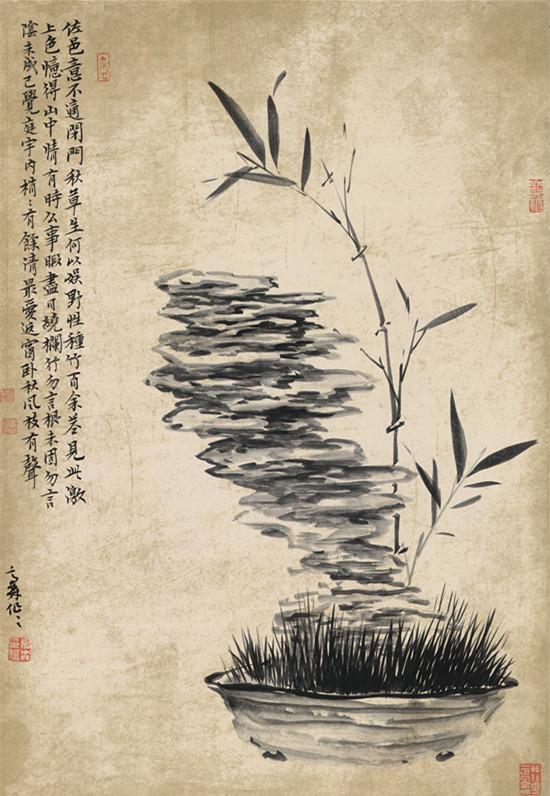 佐邑意不適閉門秋草生何以娱野性種竹百余莖見此激
上色憶得山中情有時公事暇盡日繞欄行勿言根未固勿言
陰未成已覺庭宇內梢〻有餘清最愛近窗卧秋風枝有聲